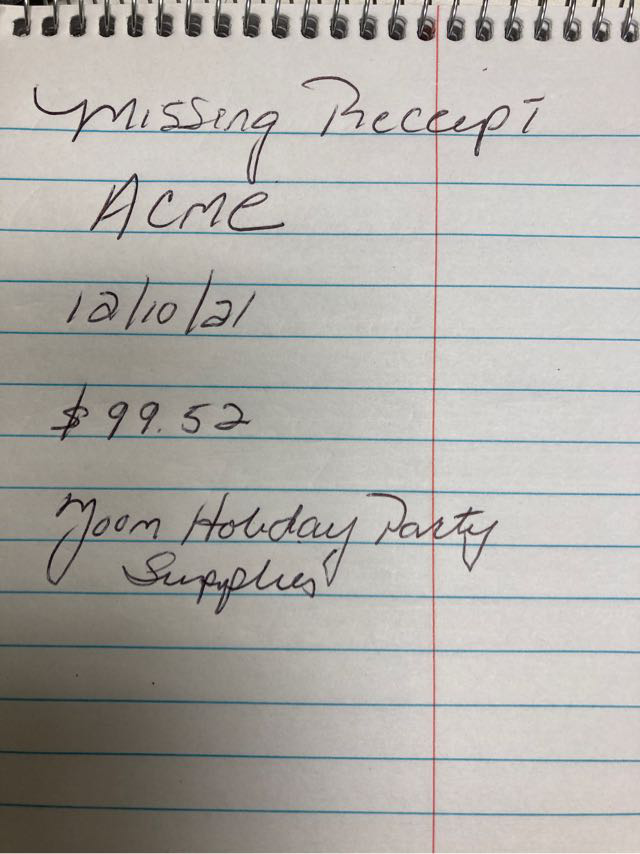 Missing Receipt
ACME
12/10/21
$99.52
Holiday Party
Supplies